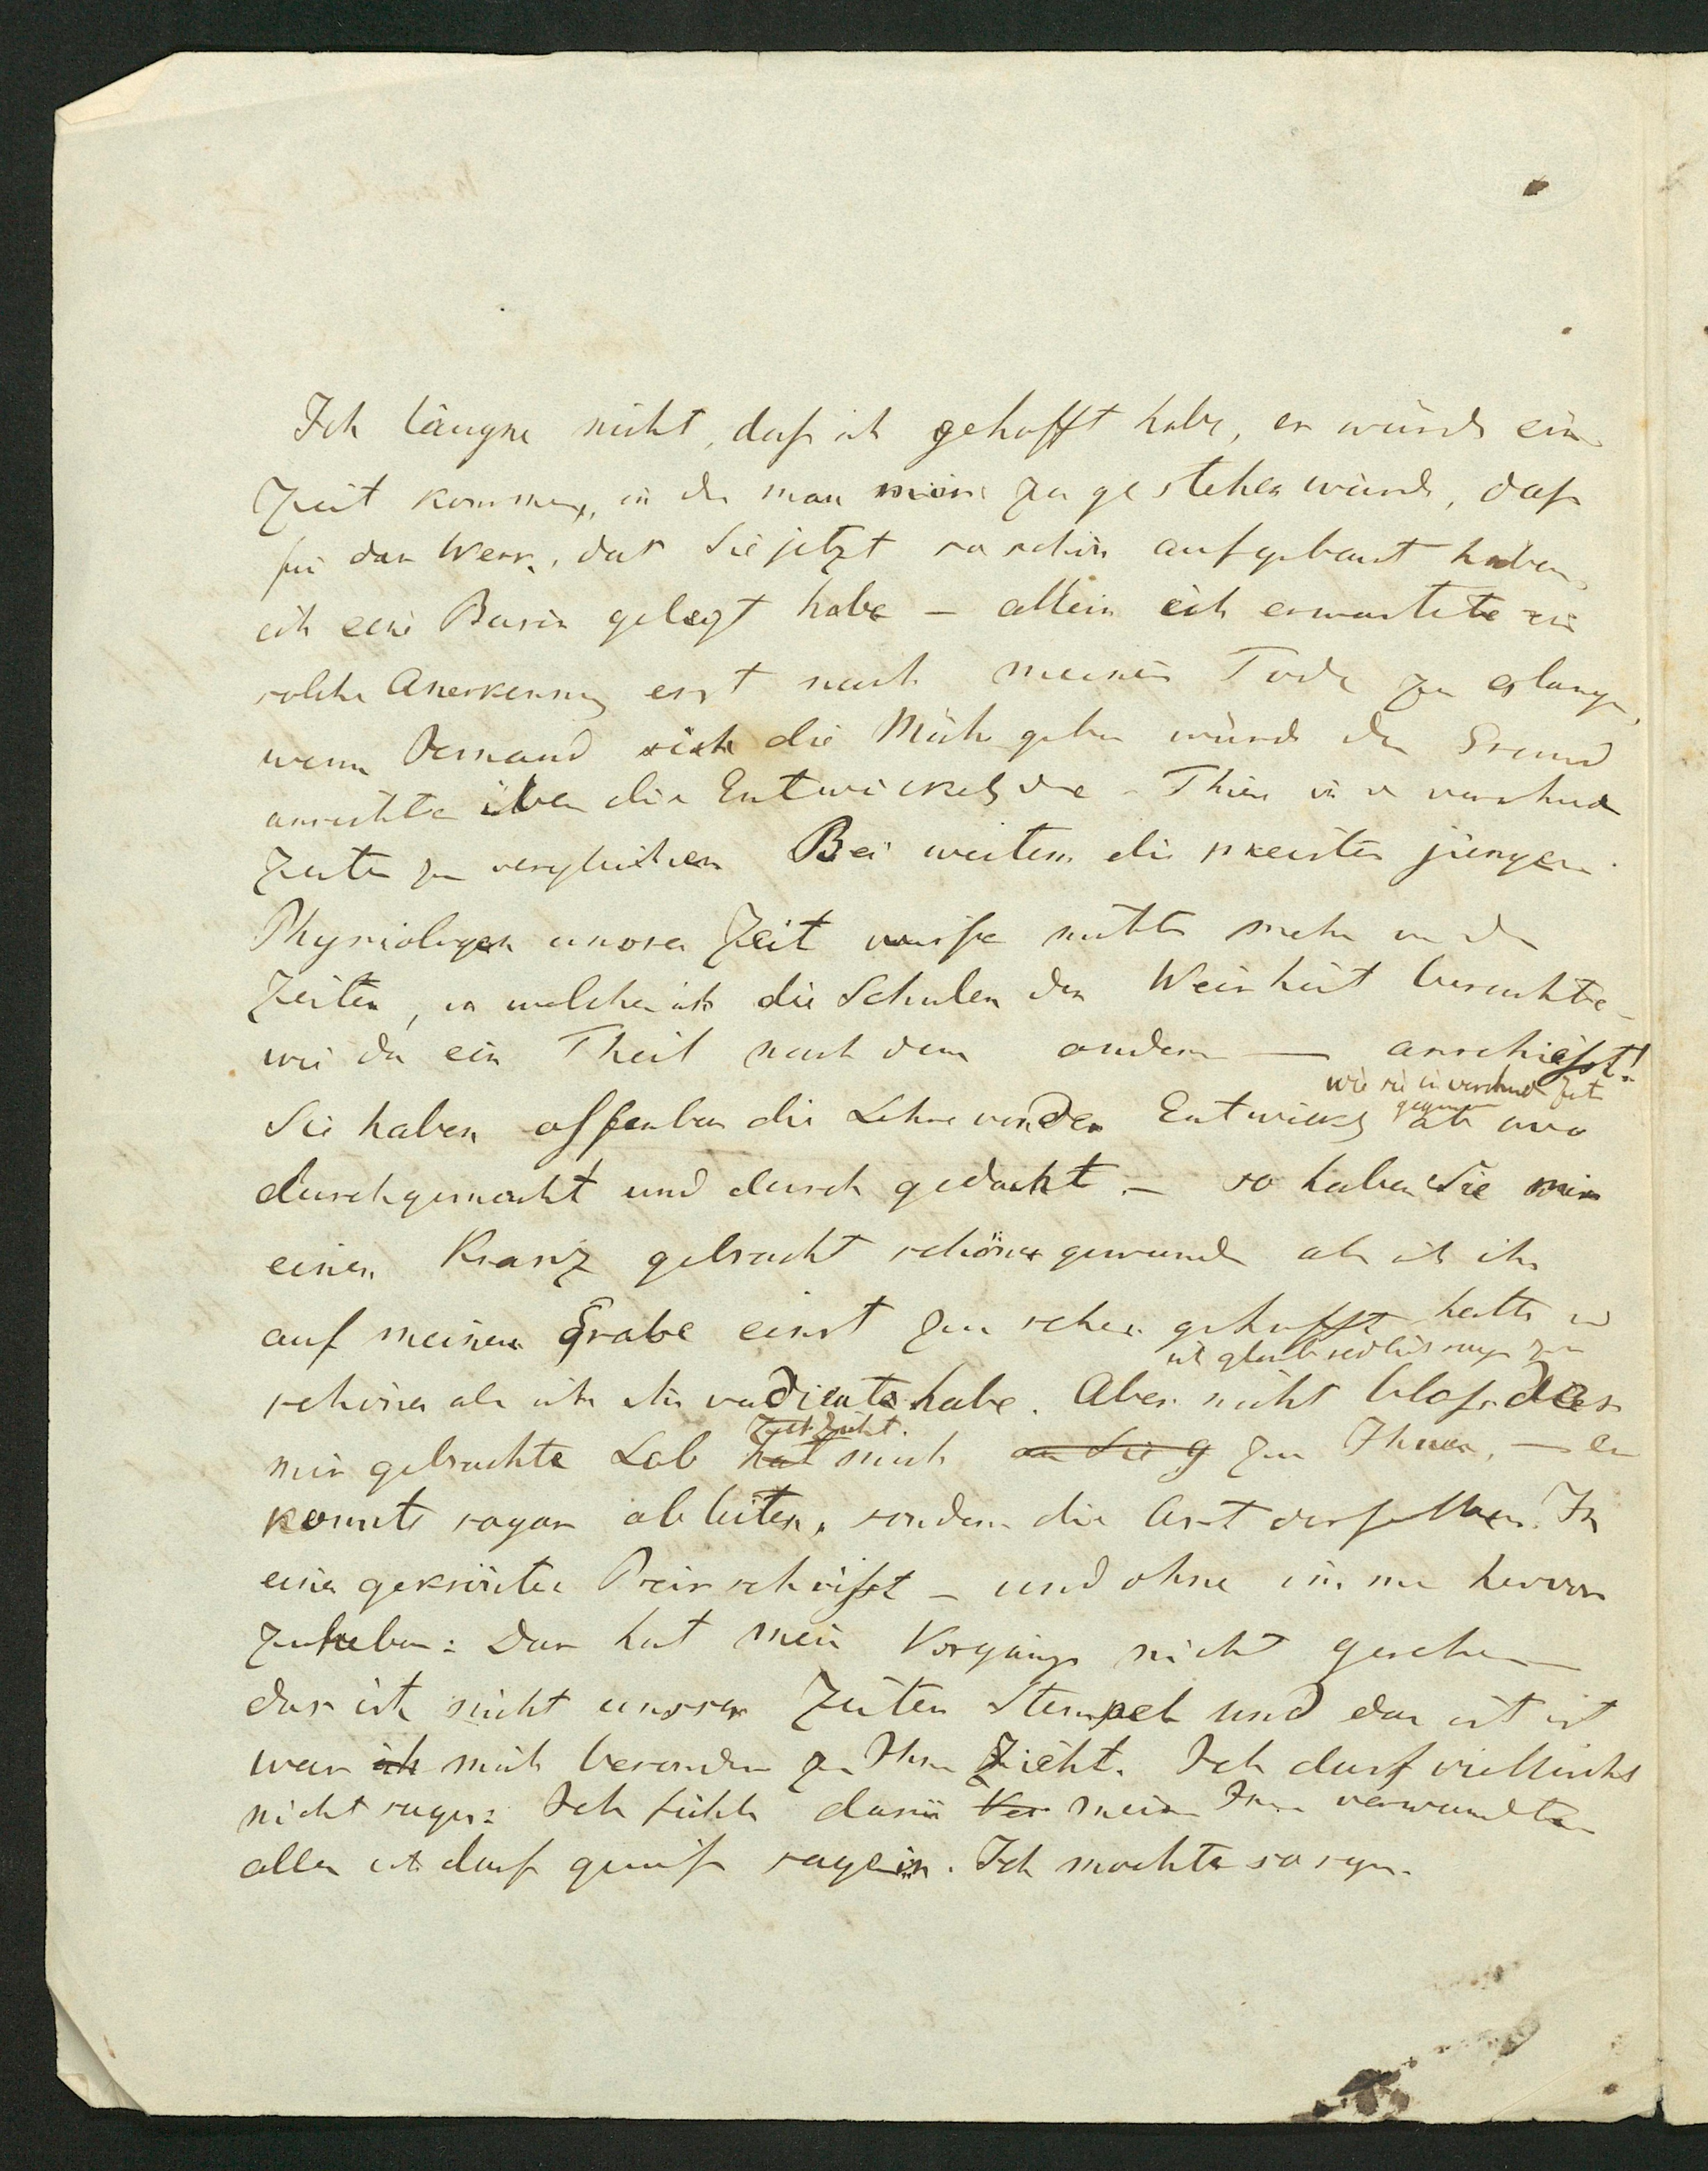 Ich läugne nicht, daß ich gehofft habe, es würde eine
Zeit kommen, in der man mir zugestehen würde, daß
für das Werk, das Sie jetzt so schön aufgebaut haben,
ich eine Basis gelegt habe – allein ich erwartete eine
solche Anerkennung erst nach meinem Tode zu erlangen,
wenn Jemand sich die Mühe geben würde die Grund
ansichten über die Entwickelg der Thiere in verschied
Zeiten zu vergleichen Bei weitem die meisten jüngern
Physiologen unsrer Zeit wissen nichts mehr von den
Zeiten, in welchen ich die Schulen der Weisheit besuchte –
wie da ein Theil nach dem andern — anschießt!
wie sie in verschied Zeit
Sie haben offenbar die Lehre von der Entwickg
durchgemacht und durch gedacht. – so haben Sie mir
einen Kranz gebracht schöner gewunden als ich ihn
auf meinem Grabe einst zu sehen gehofft hatte u
ich glaube redlich sagen zu
schöner als ich ihn verdient habe. Aber nicht bloß das
zieht
mir gebrachte Lob hat mich an Sie g zu Ihnen, — es
konnte sogar ableiten, sondern die Art desselben. In
einer gekrönten Preisschrift – und ohne immer hervor
zuheben: Das hat mein Vorgänger nicht gesehen —
das ist nicht unsrer Zeiten Stempel und das ist ist
was ich mich besonders zu Ihnen zieht. Ich darf vielleicht
nicht sagen: Ich fühle darin Ver mein Ihnen verwandten
allein ich darf gewiß sagen. Ich mochte so seyn.